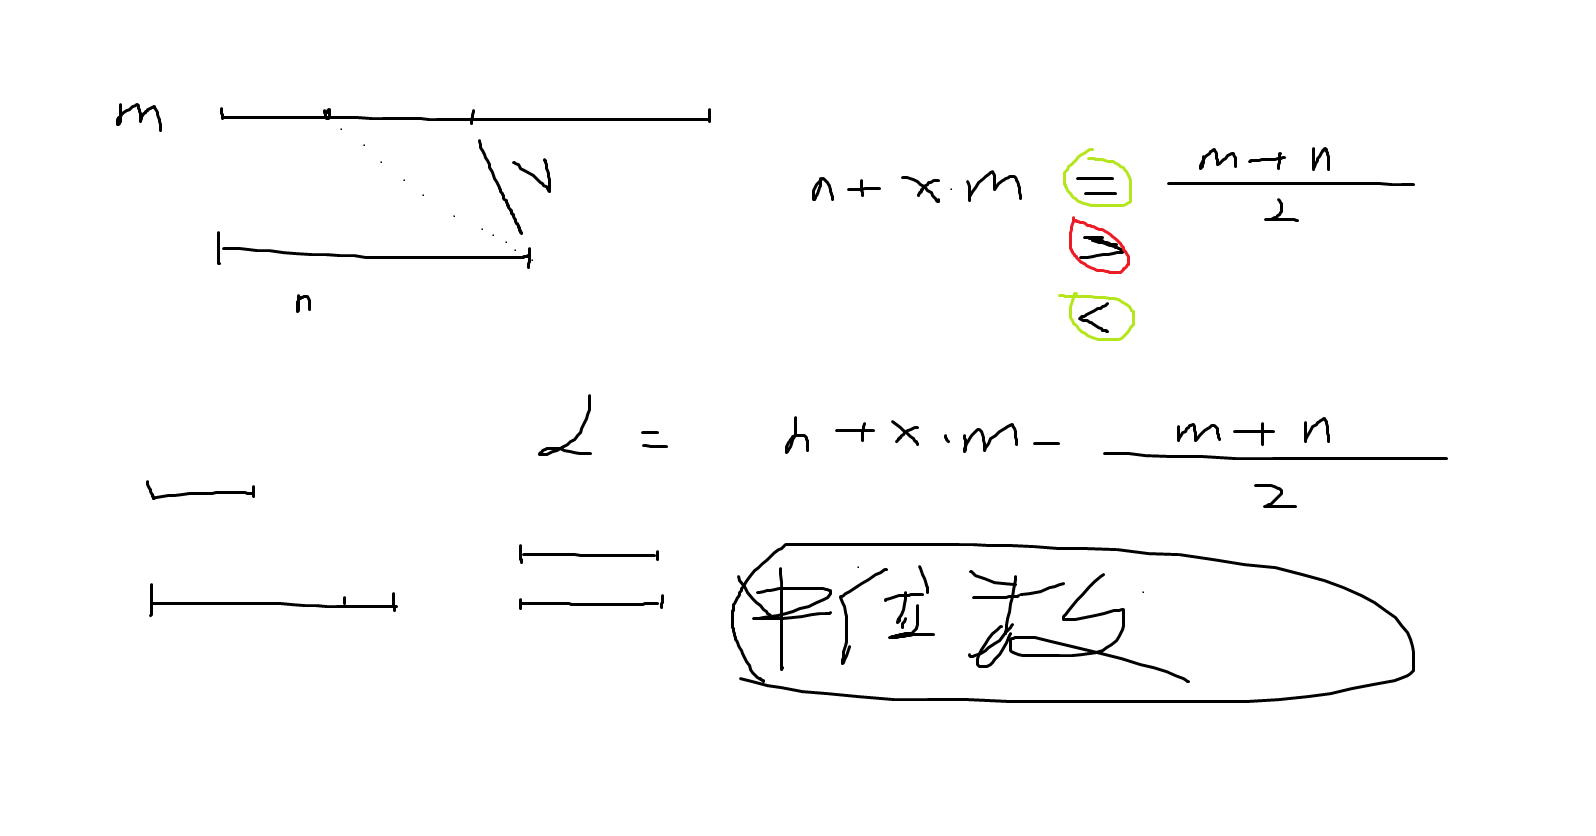 m
n
n + x · m = (m + n) / 2
>
<
α = n + x · m - (m + n) / 2
中位